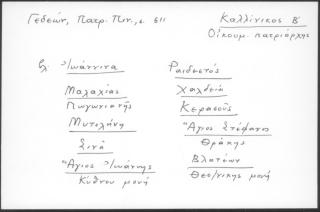 Γεδεών, Πατρ. Πιν., σ. 611
Καλλίνικος Β´
Οἰκουμ. πατριάρχης
βλ. Ἰωάννινα
Μαλαχίας
Πωγωνιατῆς
Μυτιλήνη
Σινᾶ
Ἅγιος Ἰωάννης
Κύθνου μονή
Ραιδεστός
Χαλδεία
Κερασοῦς
Ἅγιος Στέφανος
Θράκης
Βλατέων
Θεσ/νίκης μονή